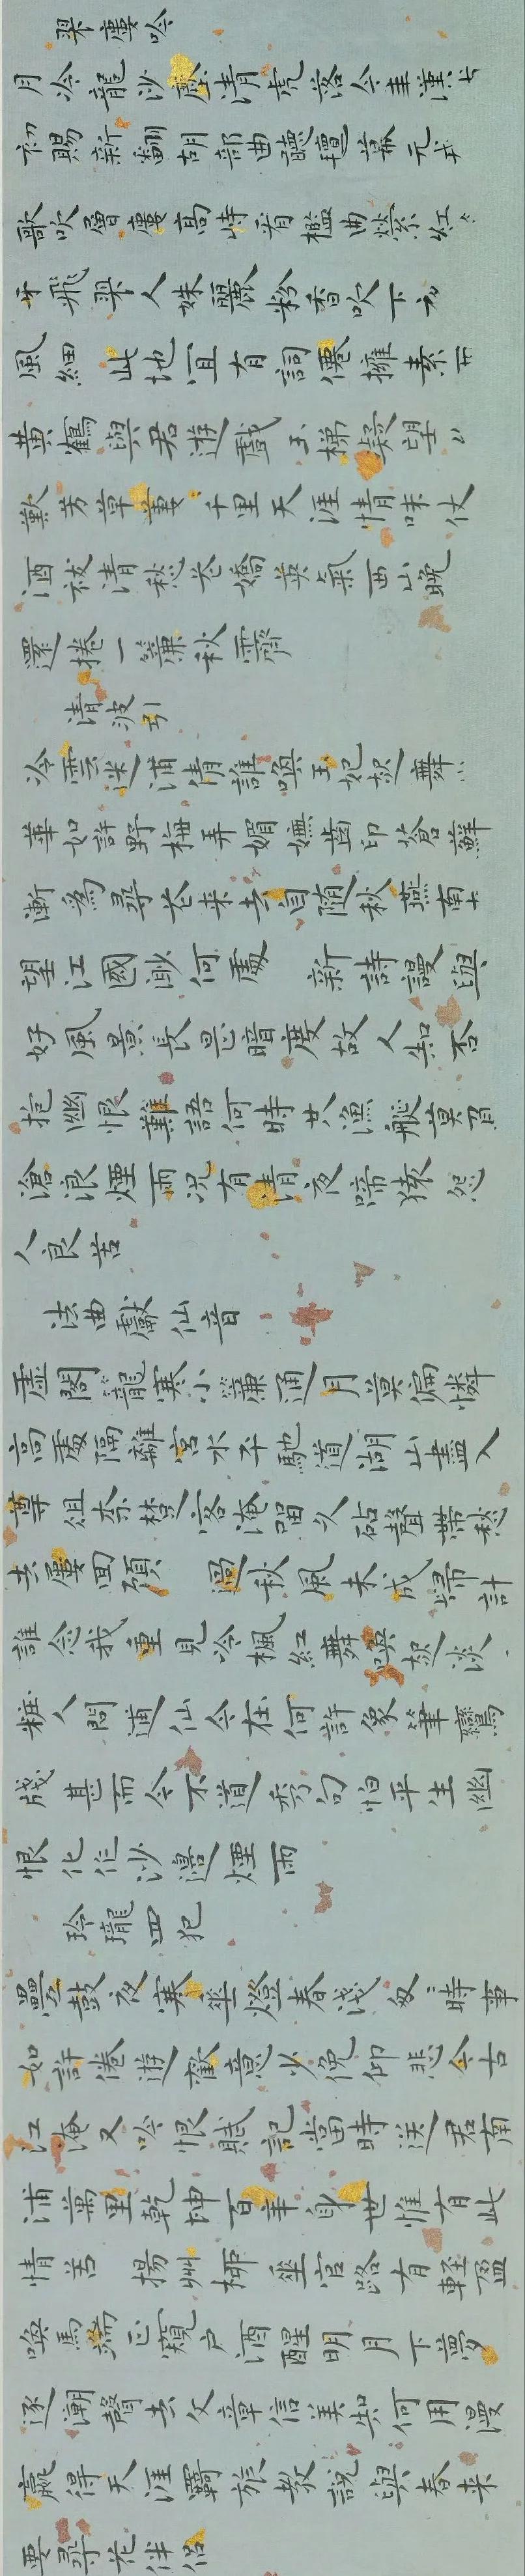 翠廔吟
月冷龍沙塵清虎落今年漢
初賜新翻胡部曲聽氊幕元戎
歌吹層廔高峙看檻曲縈紅
牙飛翠人姝麗粉香吹下
風細此地宜有詞僊擁素
黃鶴與君遊戲玉梯凝望
歎芳草萋千里天涯情味仗
酒祓清愁花嬌英氣西山晚
還捲一簾秋霽
清波引
冷雲迷浦倩誰喚玉妃起舞
華如許野梅弄媚嫵齒印蒼蘚
漸為尋花來去自随秋燕南
望江國渺何處　新詩謾與
好風景長是暗度故人知否
抱幽恨難語何時共漁艇莫負
滄浪煙雨况有清夜啼猿怨
人良苦
法曲獻仙音
虛閣籠寒小簾通月莫偏憐
高處隔離宮水平馳道湖山盡入
尊俎柰楚客淹留久砧聲帶愁
去屢回顧　過秋風未成歸計
誰念我重見冷楓紅舞喚起淡
粧人問逋仙今在何許象筆鸞
牋甚而今不道秀句怕平生幽
恨化作沙邊煙雨
玲瓏四犯
疊鼓夜寒垂燈春淺匆匆時事
如許倦遊歡意少俛仰悲今古
江淹又吟恨賦記當時送君南
浦萬里乾坤百年身世惟有此
情苦　揚州柳垂官路有輕盈
喚馬端正窺戶酒醒明月下夢
逐潮聲去文章信美知何用漫
贏得天涯羈旅教說與春來
要尋花伴侶